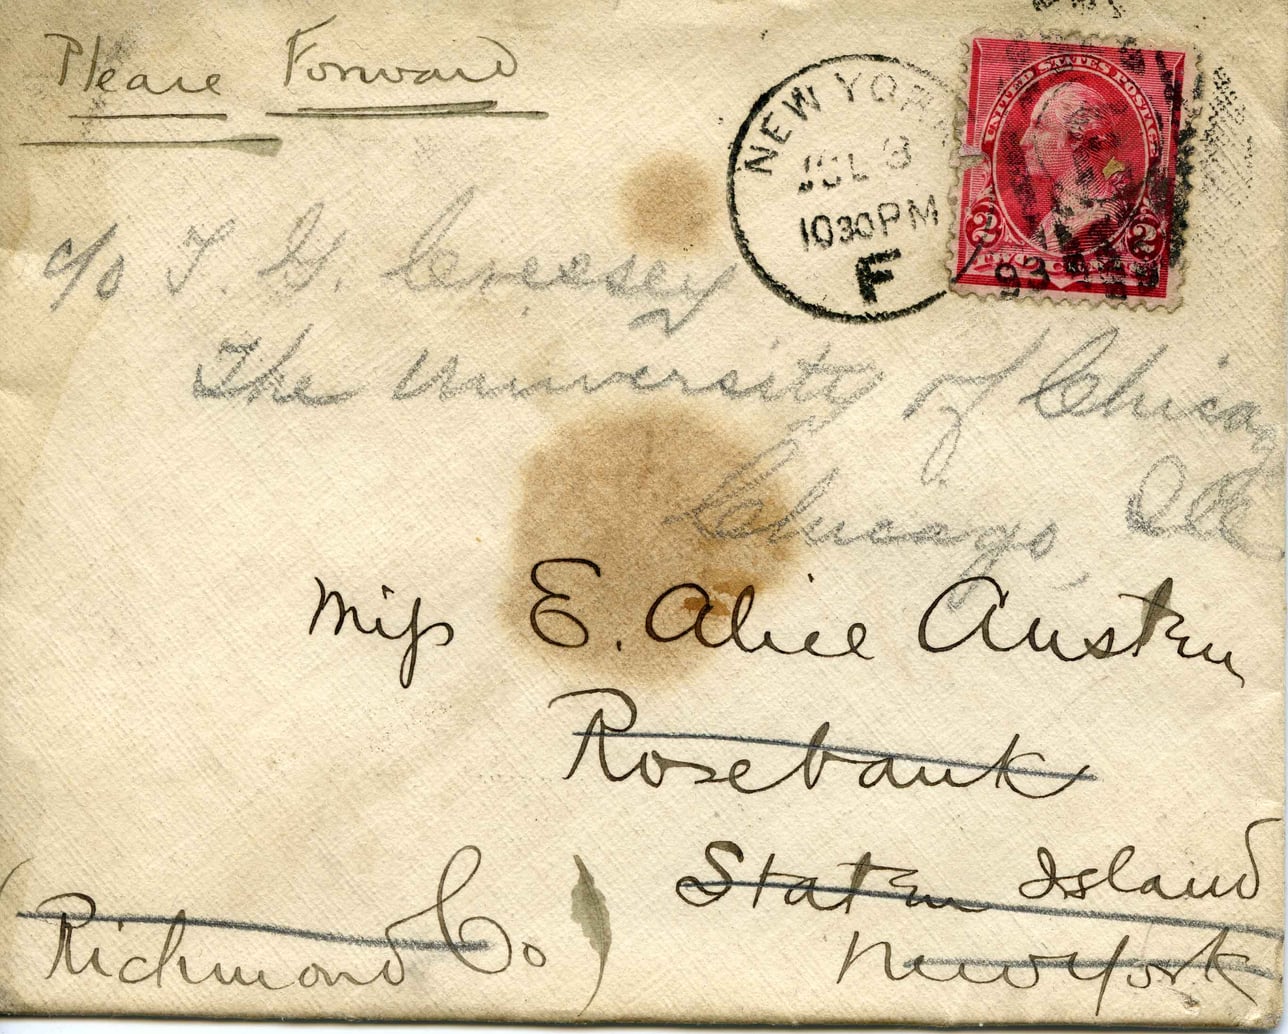 Please Forward
NEW YORK
JUL 8
1030PM
F
93
UNITED STATES POSTAGE
2 2
TWO CENTS
c/o J. G. Creesey
The University of Chicago
Chicago, Ill
Miss E. Alice Austen
Rosebank
Staten Island
(Richmond Co)
New York